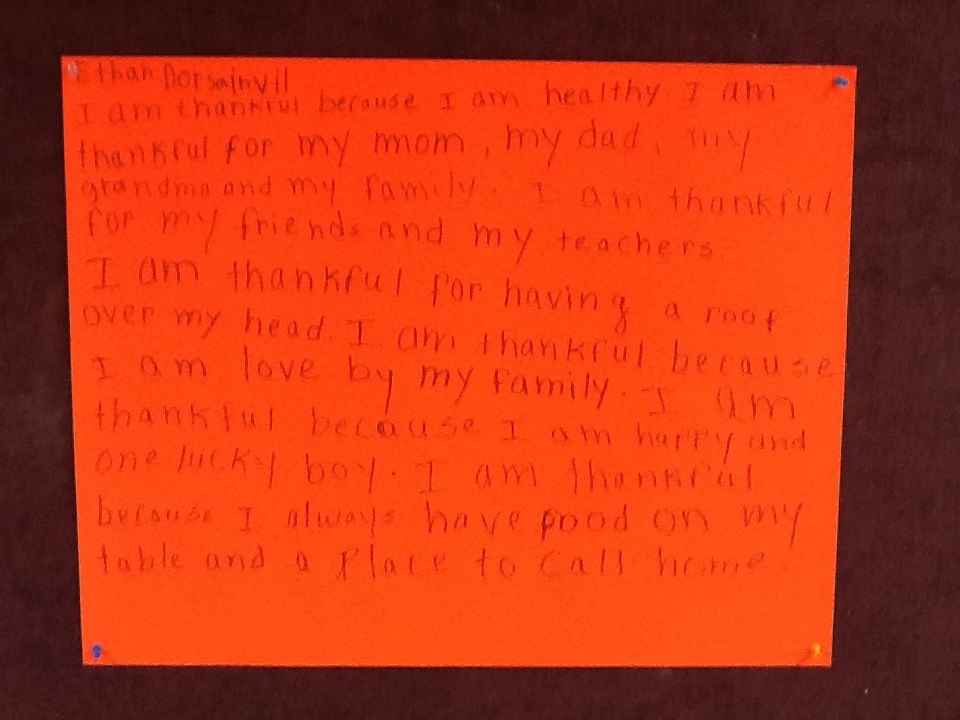 Ethan Dorsainvil
I am thankful because I am healthy I am
thankful for my mom, my dad, my
grandma and my family. I am thankful
for my friends and my teachers.
I am thankful for having a roof
over my head. I am thankful because
I am love by my family. I am
thankful because I am happy and
one lucky boy. I am thankful
because I always have food on my
table and a Place to Call home.